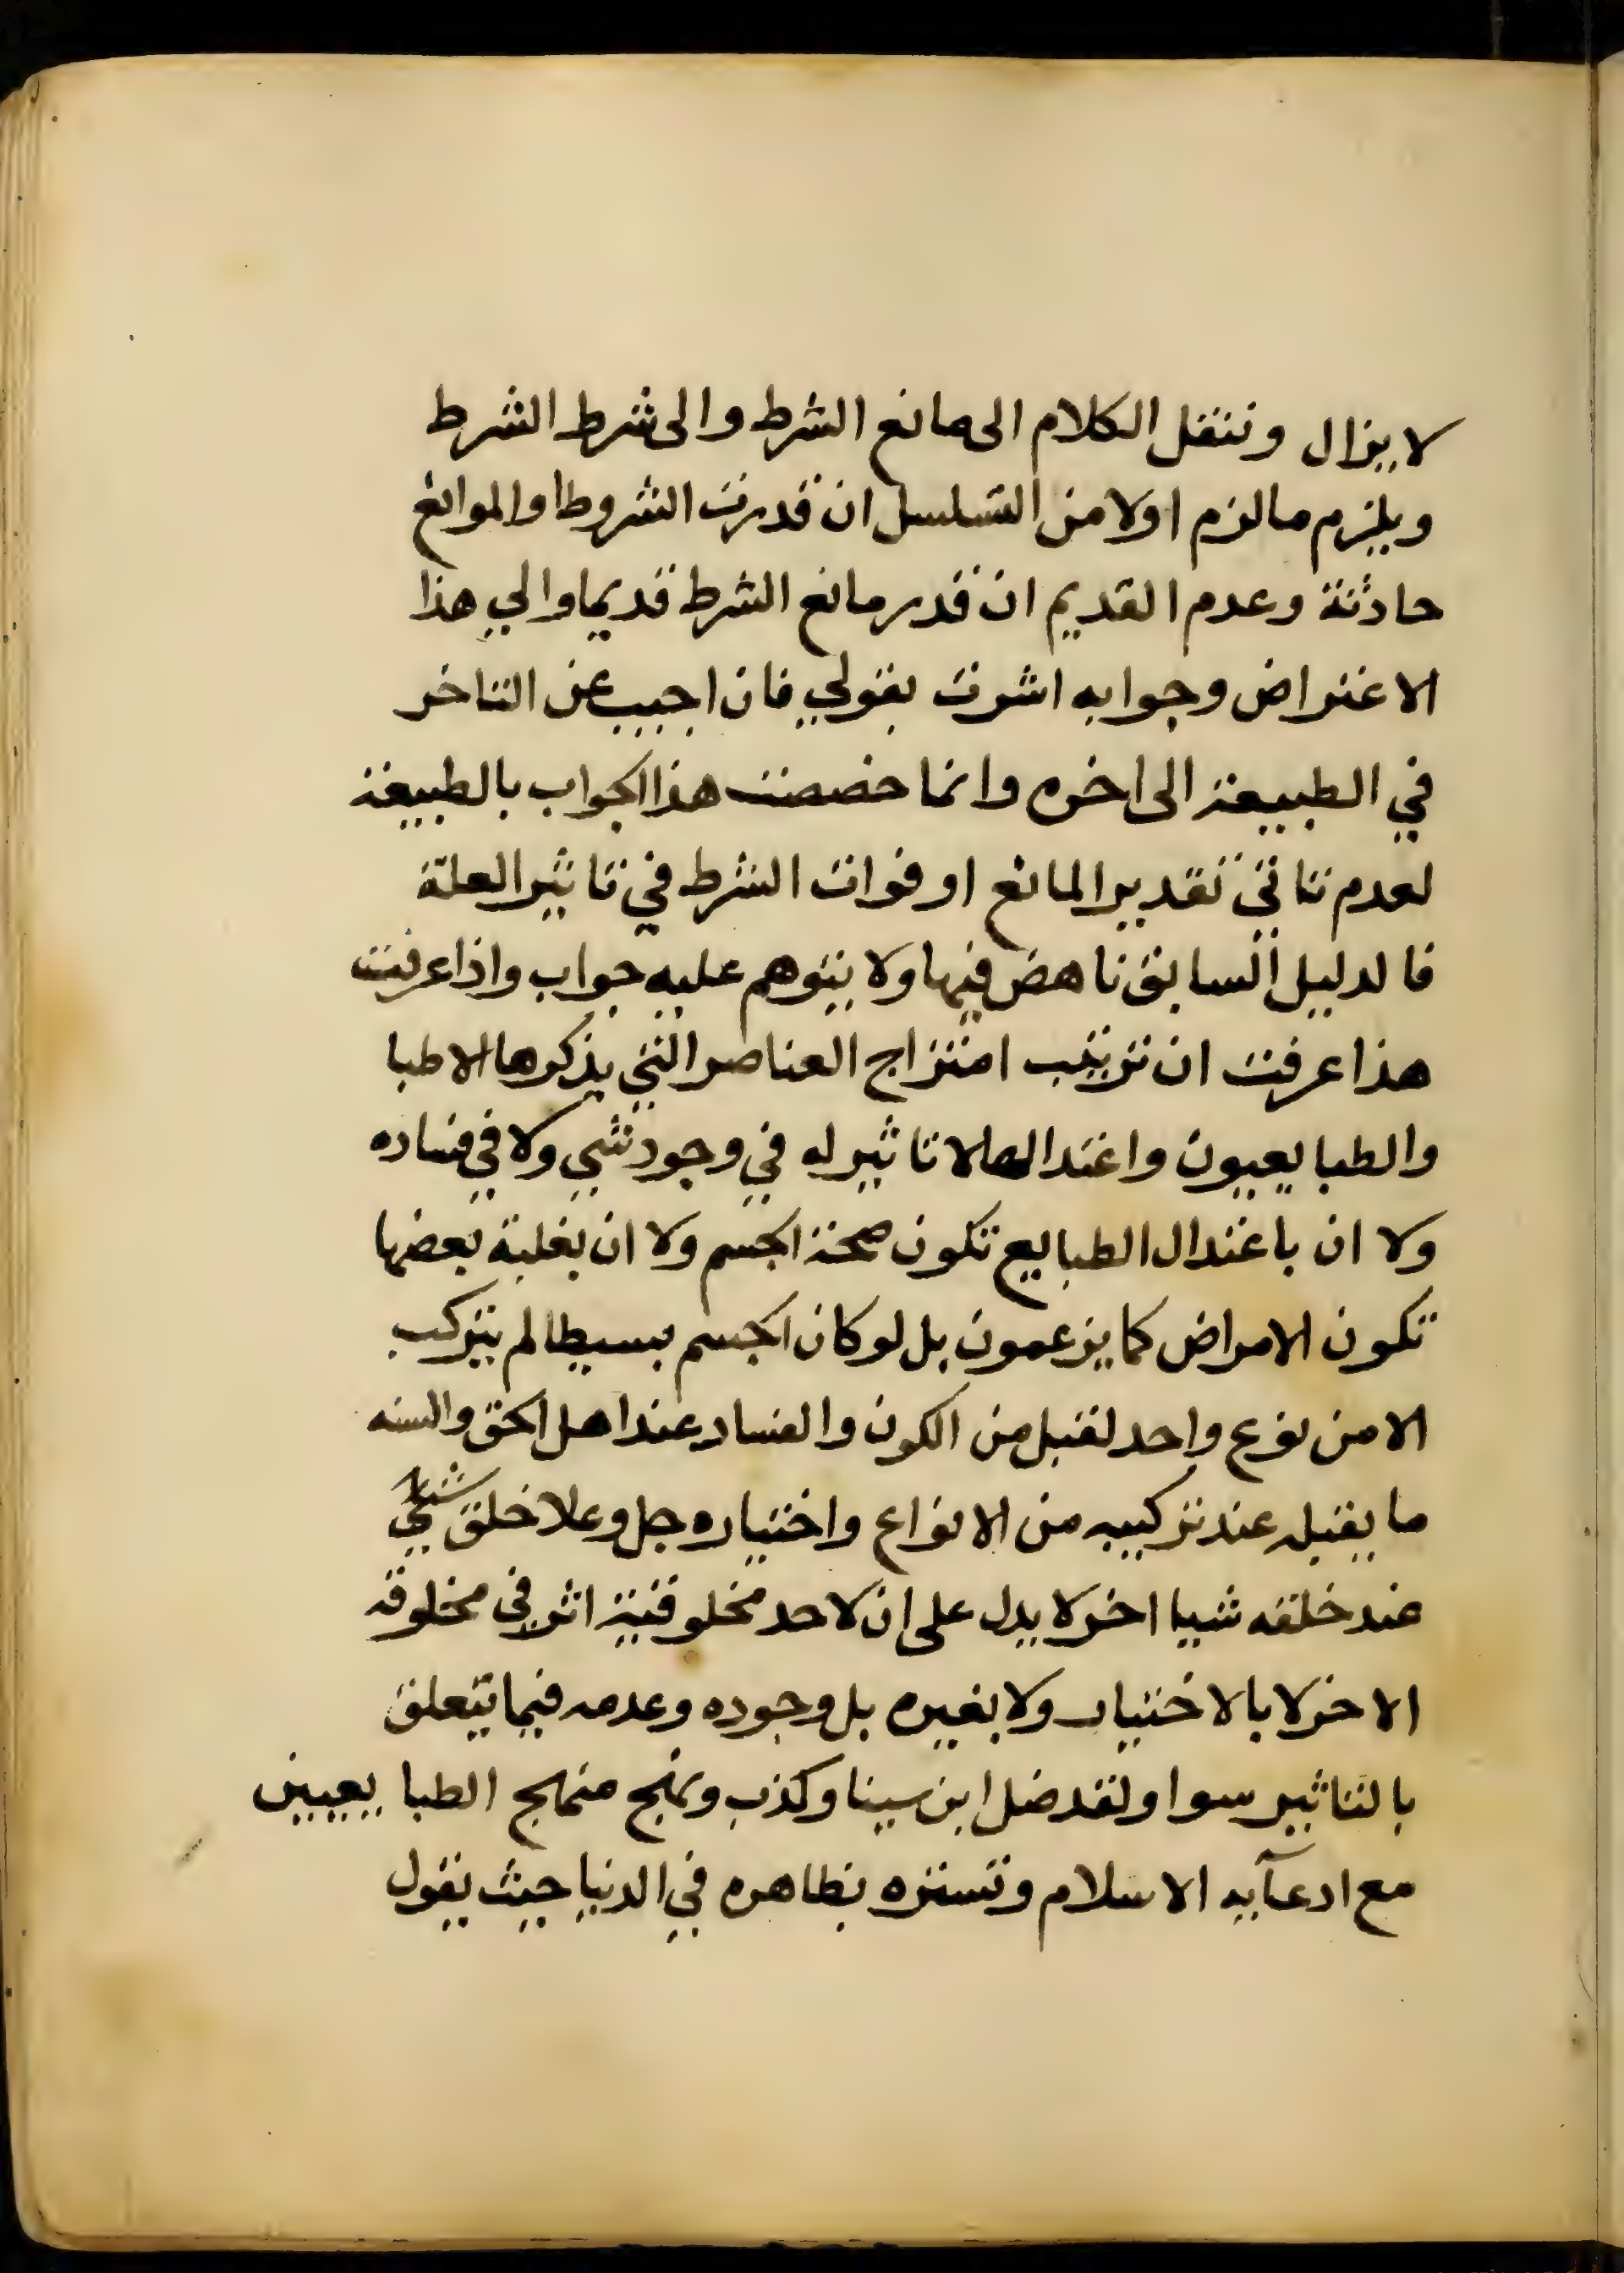 لا يزال وننقل الكلام الى مانع الشرط والى شرط الشرط
ويلزم ما لزم اولا من التسلسل ان قدرت الشروط او الموانع
حادثة وعدم القديم ان قدر مانع الشرط قديما والي هذا
الاعتراض وجوابه اشرت بقولي فان اجيب عن التاخر
في الطبيعة الى اخره وانما خصصت هذا الجواب بالطبيعة
لعدم تاتي تقدير المانع او فوات الشرط في تاثير العلة
فالدليل السابق ناهض فيها ولا يتوهم عليه جواب واذا عرفت
هذا عرفت ان ترتيب امتزاج العناصر التي يذكرها الاطبا
والطبايعيون واعتدالها لا تاثير له في وجود شي ولا في فساده
ولا ان باعتدال الطبايع تكون صحة الجسم ولا ان بغلبة بعضها
تكون الامراض كما يزعمون بل لو كان الجسم بسيطا لم يتركب
الا من نوع واحد لقبل من الكون والفساد عند اهل الحق والسنه
ما يقبله عند تركيبه من الانواع واختياره جل وعلا خلق شي
عند خلقه شيا اخر لا يدل على ان لاحد مخلوقيه اثر في مخلوقه
الاخر لا بالاختيار ولا بغيره بل وجوده وعدمه فيما يتعلق
بالتاثير سوا ولقد ضل ابن سينا وكذب ونهج منهج الطبايعيين
مع ادعآيه الاسلام وتستره بظاهره في الدنيا حيث يقول